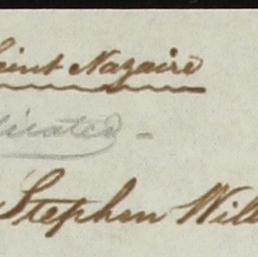 aint Nazaire
licated -
Stephen Will